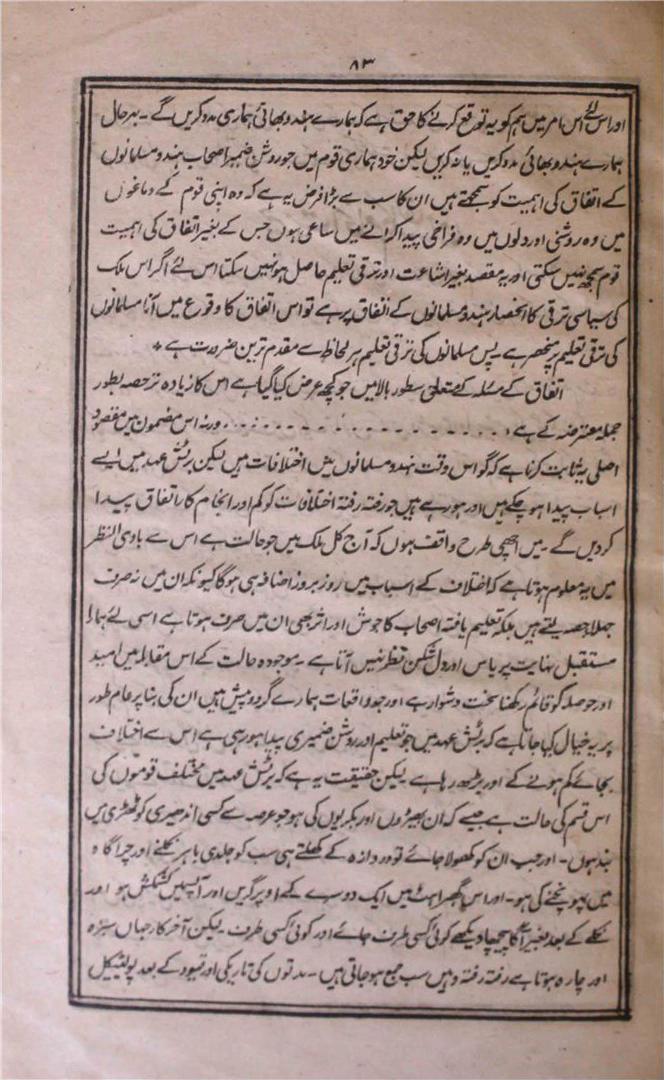 ۸۳
اور اس لئے اس امر میں ہم کو یہ توقع کرنے کا حق ہے کہ ہمارے ہندو بھائی ہماری مدد کریں گے ۔ بہر حال
ہمارے ہندو بھائی مدد کریں یا نہ کریں لیکن خود ہماری قوم میں جو روشن ضمیر اصحاب ہندو مسلمانوں
کے اتفاق کی اہمیت کو سمجھتے ہیں ان کا سب سے بڑا فرض یہ ہے کہ وہ اپنی قوم کے دماغوں
میں وہ روشنی اور دلوں میں وہ فراخی پیدا کرانے میں ساعی ہوں جس کے بغیر اتفاق کی اہمیت
قوم سمجھ نہیں سکتی اور یہ مقصد بغیر اشاعت اور ترقی تعلیم حاصل ہو نہیں سکتا اس لئے اگر اس ملک
کی سیاسی ترقی کا انحصار ہندو مسلمانوں کے اتفاق پر ہے تو اس اتفاق کا وقوع میں آنا مسلمانوں
کی ترقی تعلیم پر منحصر ہے ۔ پس مسلمانوں کی ترقی تعلیم ہر لحاظ سے مقدم ترین ضرورت ہے ٭
اتفاق کے مسئلہ کے متعلق سطور بالا میں جو کچھ عرض کیا گیا ہے اس کا زیادہ تر حصہ بطور
جملہ معترضہ کے ہے ۔ ۔ ۔ ۔ ۔ ۔ ۔ ۔ ۔ ۔ ۔ ۔ ۔ ۔ ۔ ورنہ اس مضمون میں مقصود
اصلی یہ ثابت کرنا ہے کہ گو اس وقت ہندو مسلمانوں میں اختلافات ہیں لیکن برٹش عہد میں ایسے
اسباب پیدا ہو چکے ہیں اور ہو رہے ہیں جو رفتہ رفتہ اختلافات کو کم اور انجام کار اتفاق پیدا
کر دیں گے ۔ میں اچھی طرح واقف ہوں کہ آج کل ملک میں جو حالت ہے اس سے بادی النظر
میں یہ معلوم ہوتا ہے کہ اختلاف کے اسباب میں روز بروز اضافہ ہی ہوگا کیونکہ ان میں نہ صرف
جہلا حصہ لیتے ہیں بلکہ تعلیم یافتہ اصحاب کا جوش اور اثر بھی ان میں صرف ہوتا ہے اسی لئے ہمارا
مستقبل نہایت پر یاس اور دل شکن نظر نہیں آتا ہے ۔ موجودہ حالت کے اس مقابلہ میں امید
اور حوصلہ کو قائم رکھنا سخت دشوار ہے اور جو واقعات ہمارے گرد و پیش ہیں ان کی بنا پر عام طور
پر یہ خیال کیا جاتا ہے کہ برٹش عہد میں جو تعلیم اور روشن ضمیری پیدا ہو رہی ہے اس سے اختلاف
بجائے کم ہونے کے اور بڑھ رہا ہے لیکن حقیقت یہ ہے کہ برٹش عہد میں مختلف قوموں کی
اس قسم کی حالت ہے جیسے کہ ان بھیڑوں اور بکریوں کی ہو جو عرصہ سے کسی اندھیری کوٹھڑی میں
بند ہوں ۔ اور جب ان کو کھولا جائے تو دروازہ کے کھلتے ہی سب کو جلدی باہر نکلنے اور چراگاہ
میں پہونچنے کی ہو ۔ اور اس گھبراہٹ میں ایک دوسرے کے اوپر گریں اور آپسمیں کشمکش ہو اور
نکلنے کے بعد بغیر آگا پیچھا دیکھے کوئی کسی طرف جائے اور کوئی کسی طرف ۔ لیکن آخر کار جہاں سبزہ
اور چارہ ہوتا ہے رفتہ رفتہ وہیں سب جمع ہو جاتی ہیں ۔ مدتوں کی تاریکی اور قیود کے بعد پولیٹیکل